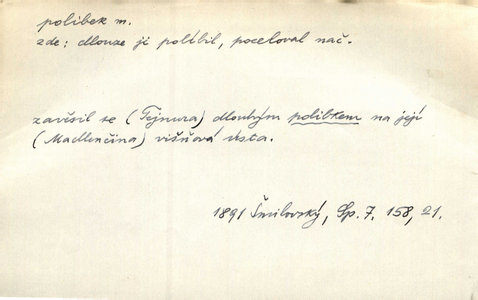 polibek m.
zde: dlouze ji políbil, poceloval nač.
zavěsil se (Tejnura) dlouhým polibkem na její
(Madlenčina) višňová ústa.
1891 Šmilovský, Sp. 7, 158, 21.